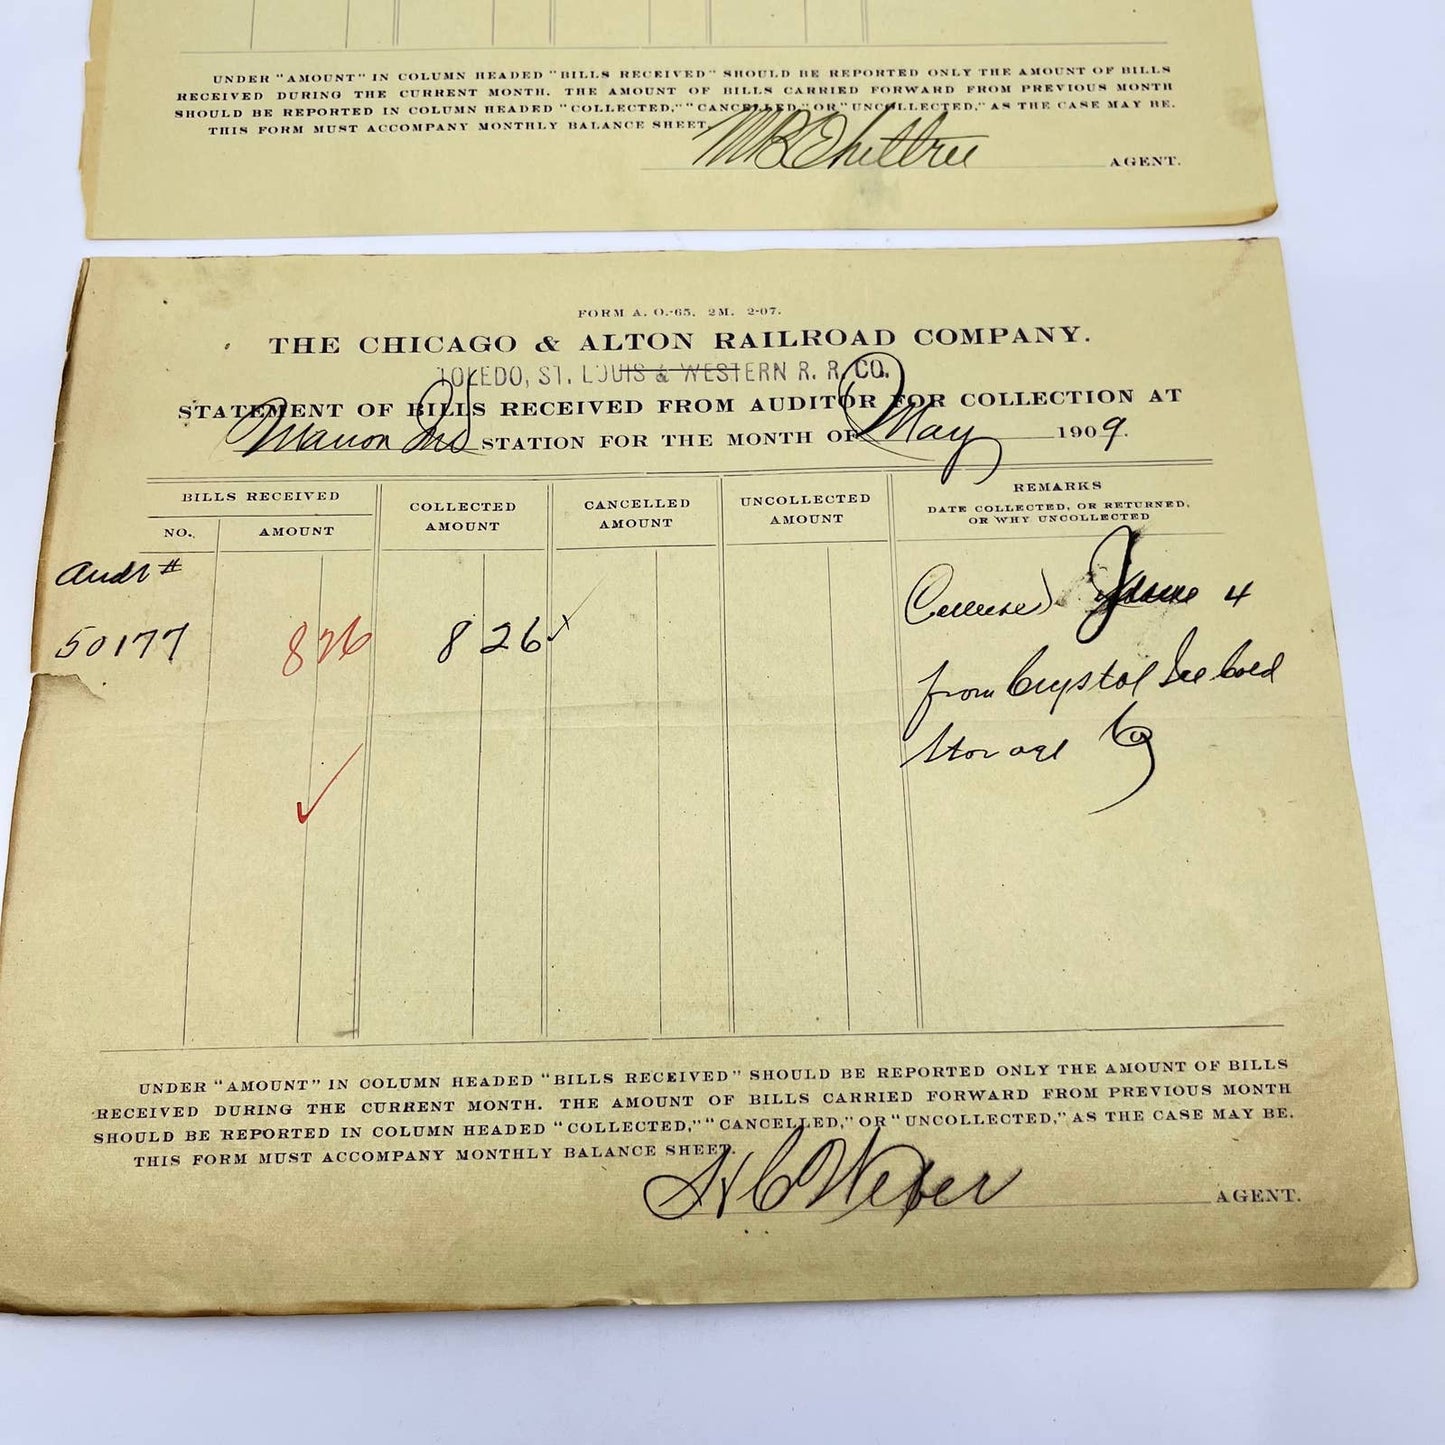 UNDER "AMOUNT" IN COLUMN HEADED "BILLS RECEIVED" SHOULD BE REPORTED ONLY THE AMOUNT OF BILLS
RECEIVED DURING THE CURRENT MONTH. THE AMOUNT OF BILLS CARRIED FORWARD FROM PREVIOUS MONTH
SHOULD BE REPORTED IN COLUMN HEADED "COLLECTED," "CANCELLED," OR "UNCOLLECTED," AS THE CASE MAY BE.
THIS FORM MUST ACCOMPANY MONTHLY BALANCE SHEET.
AGENT.
FORM A. O.-65. 2M. 2-07.
THE CHICAGO & ALTON RAILROAD COMPANY.
TOLEDO, ST. LOUIS & WESTERN R. R. CO.
STATEMENT OF BILLS RECEIVED FROM AUDITOR FOR COLLECTION AT
Marion Ind STATION FOR THE MONTH OF May 1909.
BILLS RECEIVED
NO.
AMOUNT
COLLECTED
AMOUNT
CANCELLED
AMOUNT
UNCOLLECTED
AMOUNT
REMARKS
DATE COLLECTED, OR RETURNED,
OR WHY UNCOLLECTED
Audr #
50177 8 26 8 26
June 4
from Crystal Ice Cold
Storage Co
UNDER "AMOUNT" IN COLUMN HEADED "BILLS RECEIVED" SHOULD BE REPORTED ONLY THE AMOUNT OF BILLS
RECEIVED DURING THE CURRENT MONTH. THE AMOUNT OF BILLS CARRIED FORWARD FROM PREVIOUS MONTH
SHOULD BE REPORTED IN COLUMN HEADED "COLLECTED," "CANCELLED," OR "UNCOLLECTED," AS THE CASE MAY BE.
THIS FORM MUST ACCOMPANY MONTHLY BALANCE SHEET.
H C Weber AGENT.